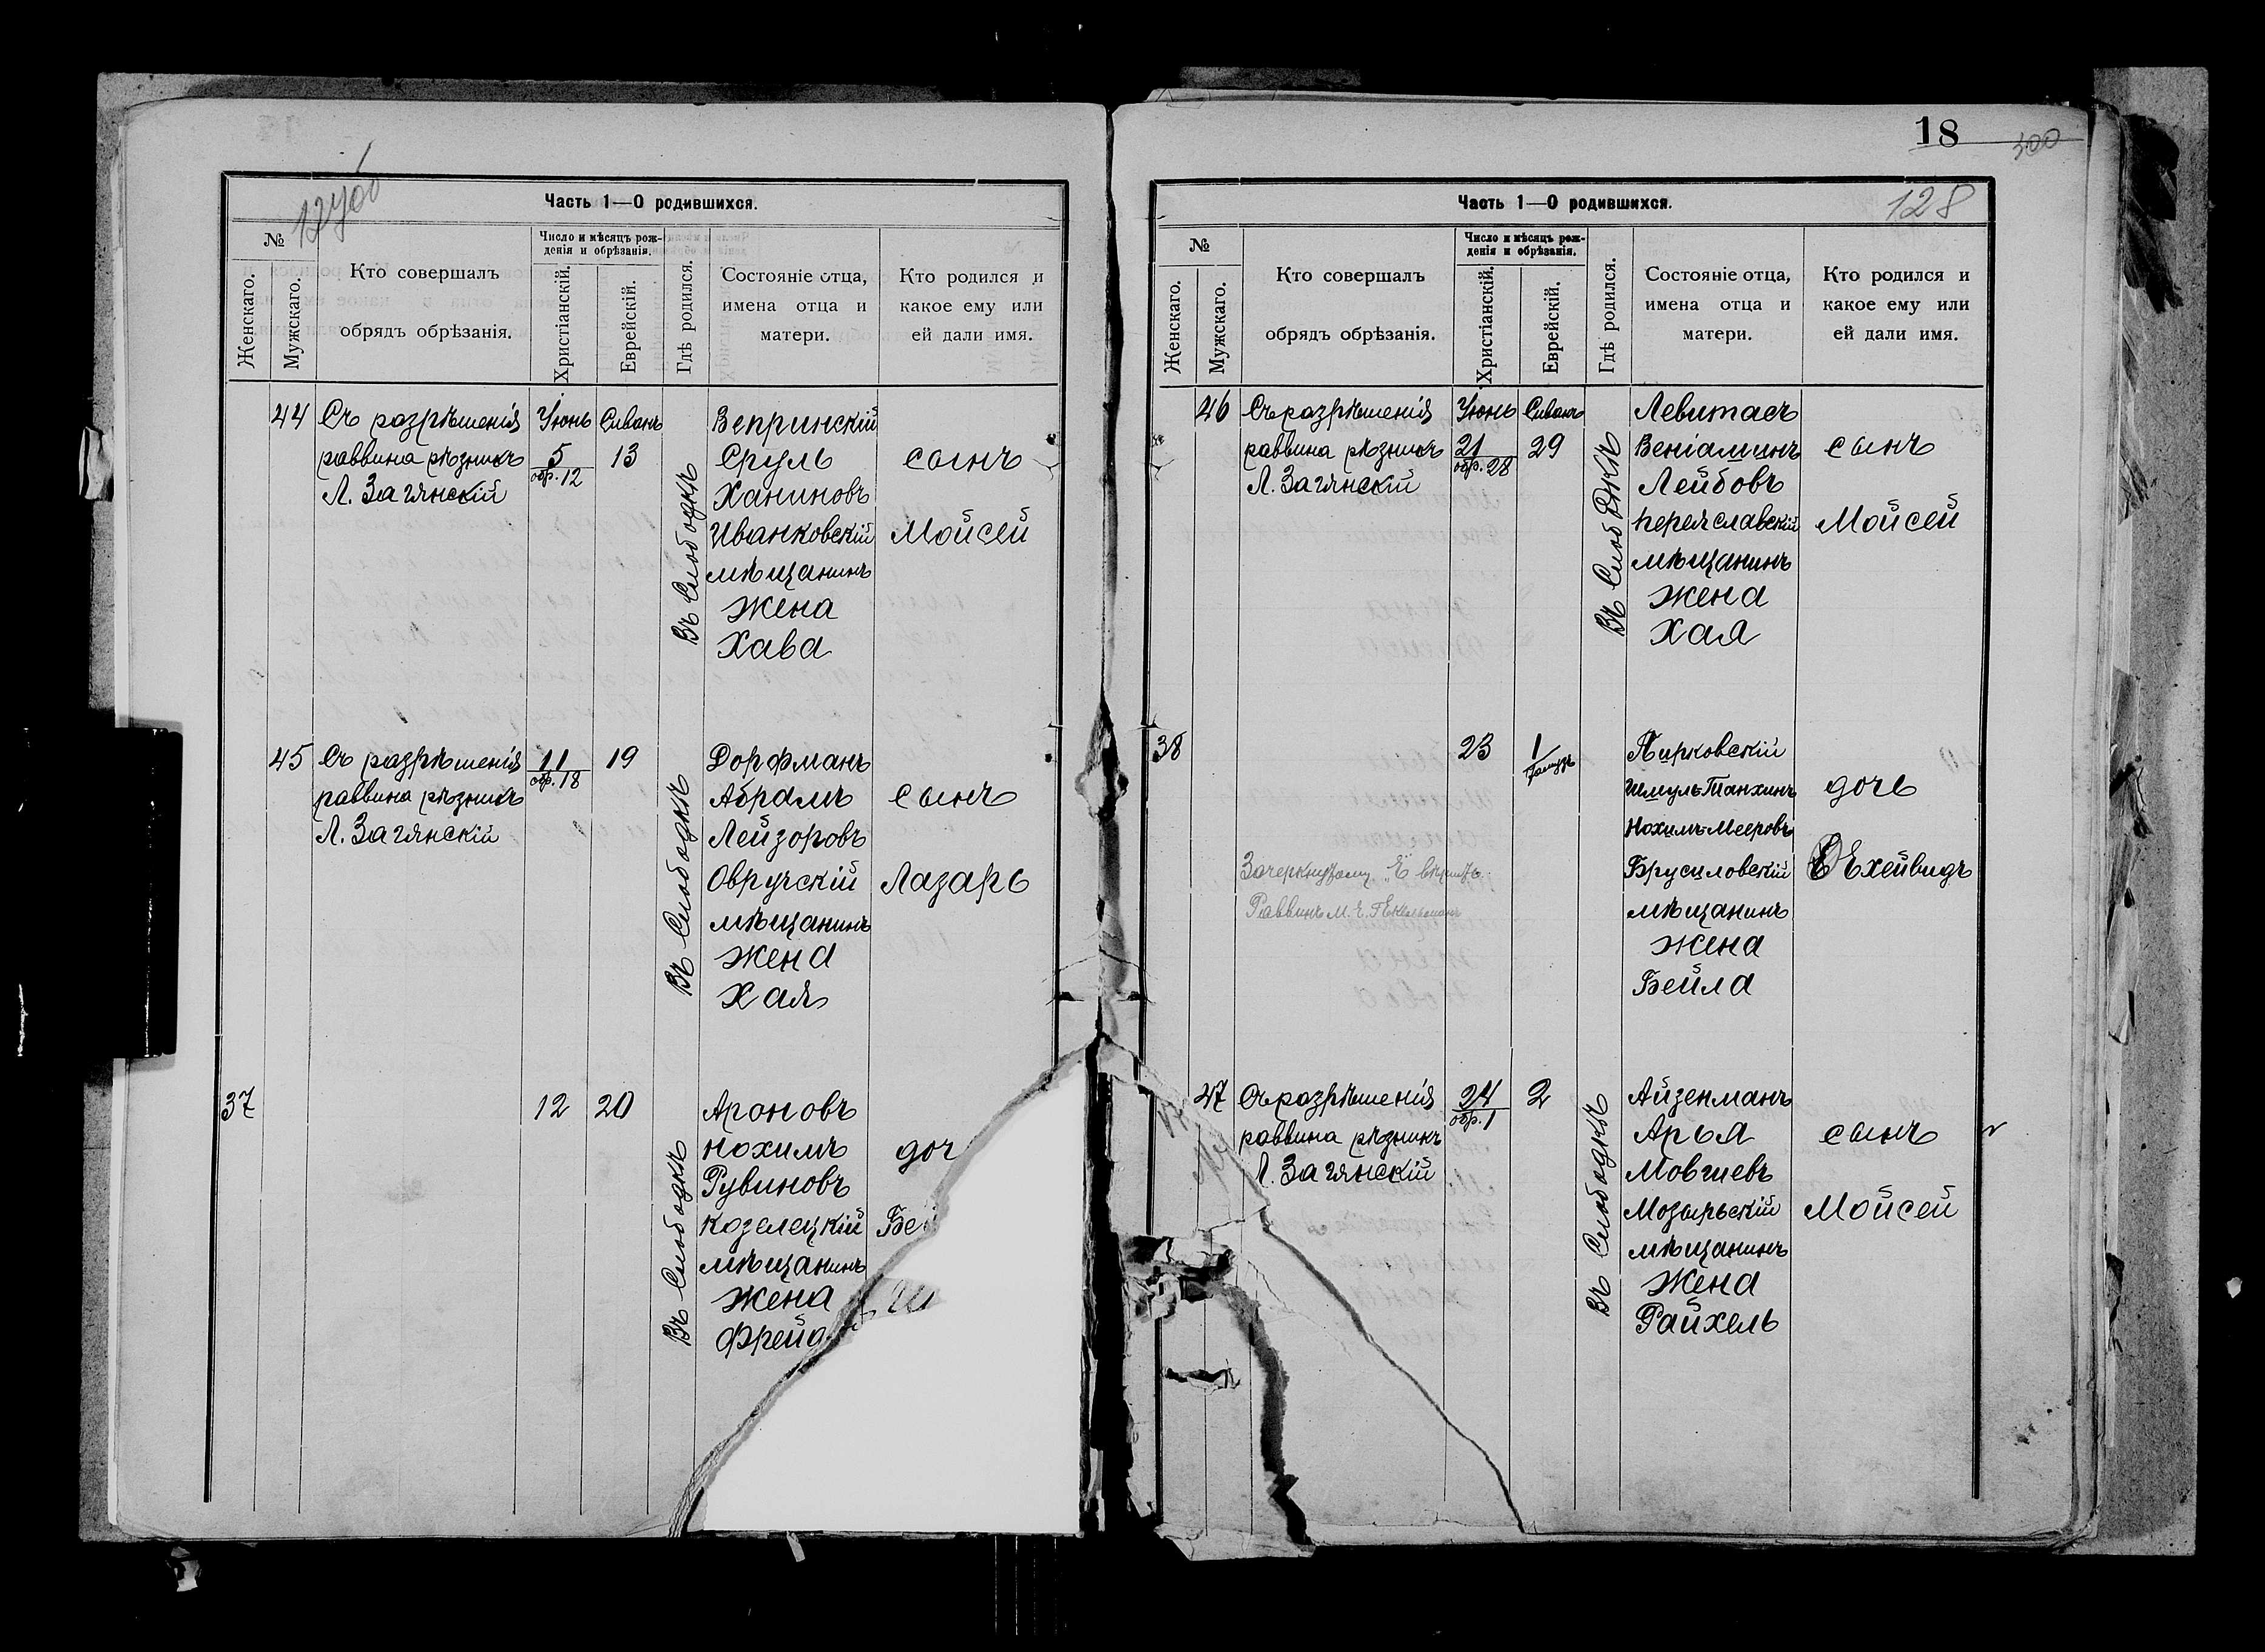 127об
Часть 1—О родившихся.
№
Женскаго.
Мужскаго.
Кто совершалъ
обрядъ обрѣзанія.
Число и мѣсяцъ рож-
денія и обрѣзанія.
Христіанскій.
Еврейскій.
Гдѣ родился.
Состояніе отца,
имена отца и
матери.
Кто родился и
какое ему или
ей дали имя.
44 Съ разрѣшенія Іюнь Сиванъ Вепринскій
раввина рѣзникъ 5 13 Сруль сынъ
обр. 12
Л. Загянскій Ханиновъ
Въ Слободкѣ
Иванковскій Мойсей
мѣщанинъ
жена
Хава
45 Съ разрѣшенія 11 19 Дорфманъ
обр. 18
раввина рѣзникъ Абрамъ сынъ
Л. Загянскій Лейзоровъ
Въ Слободкѣ
Овручскій Лазарь
мѣщанинъ
жена
Хая
37 12 20 Ароновъ
Нохимъ доч
Рувиновъ
Въ Слободкѣ
Козелецкій Бе
мѣщанинъ
жена
Фрейд
18
300
128
Часть 1—О родившихся.
№
Женскаго.
Мужскаго.
Кто совершалъ
обрядъ обрѣзанія.
Число и мѣсяцъ рож-
денія и обрѣзанія.
Христіанскій.
Еврейскій.
Гдѣ родился.
Состояніе отца,
имена отца и
матери.
Кто родился и
какое ему или
ей дали имя.
46 Съ разрѣшенія Іюнь Сиванъ Левитасъ
раввина рѣзникъ 21 29 Веніаминъ сынъ
обр. 28
Л. Загянскій Лейбовъ
Въ Слободкѣ
Переяславскій Мойсей
мѣщанинъ
жена
Хая
38 23 1 Пирковскій
Тамузъ
Шмуль-Танхинъ дочь
Нохимъ-Мееровъ
Зачеркнутому „Е" вѣрить. Брусиловскій Ехейвидъ
Раввинъ М. Е.
мѣщанинъ
жена
Бейла
47 Съ разрѣшенія 24 2 Айзенманъ
обр. 1
раввина рѣзникъ Арья сынъ
Л. Загянскій Мовшевъ
Въ Слободкѣ
Мозырьскій Мойсей
мѣщанинъ
жена
Райхель